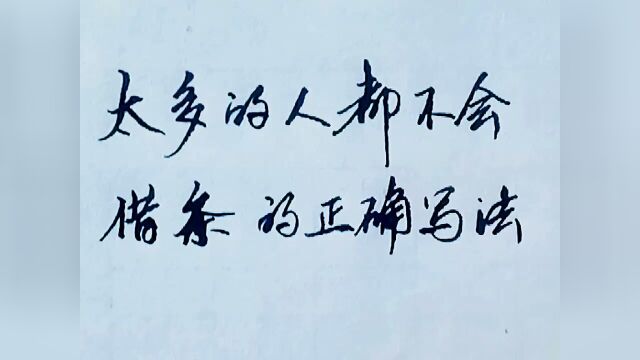 太多的人都不会
借条的正确写法